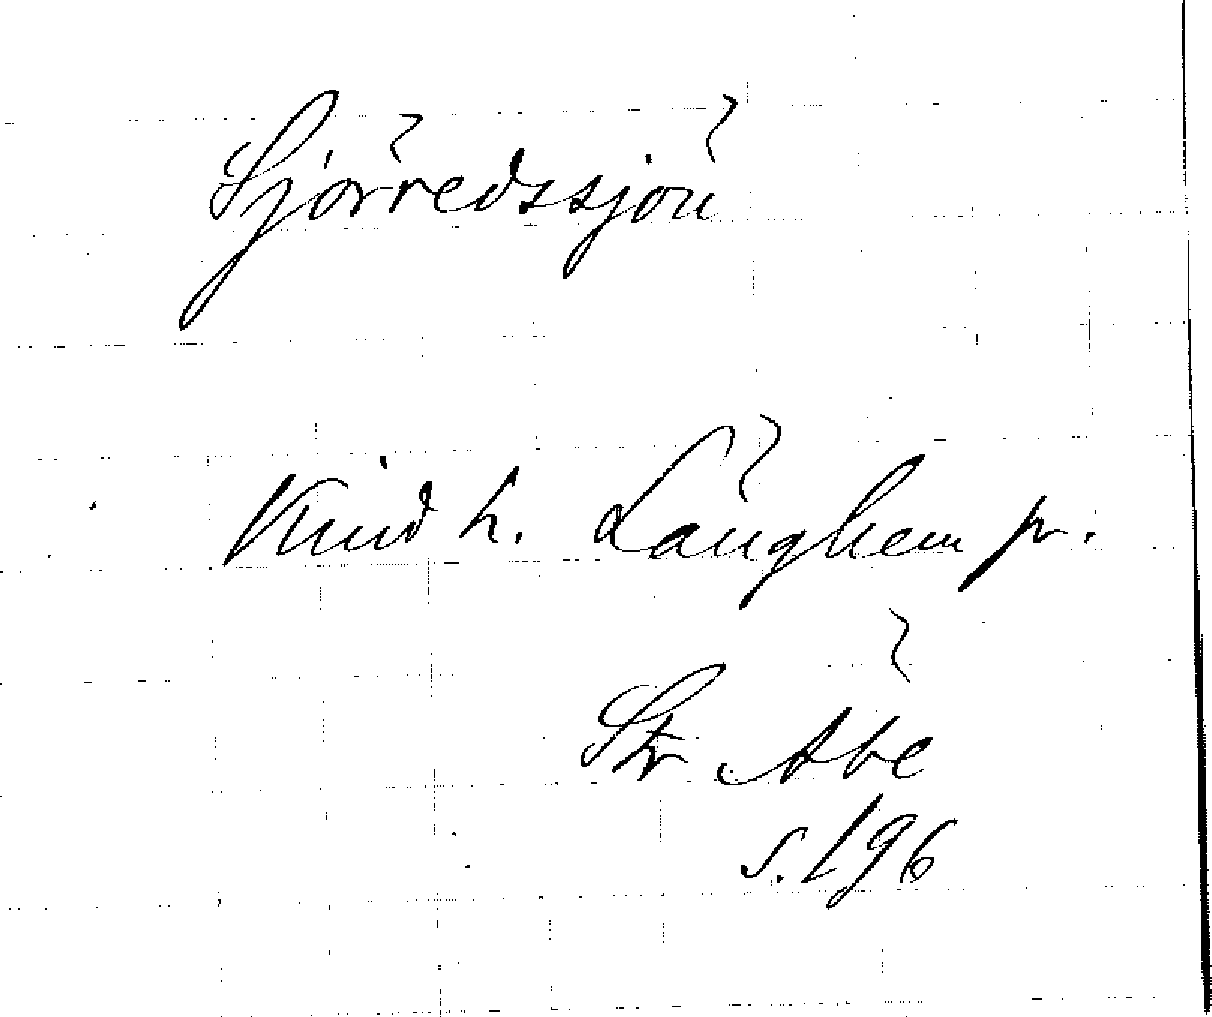 Sjörredssjön
Kind h. Länghem pr.
Str Abe
s. 196